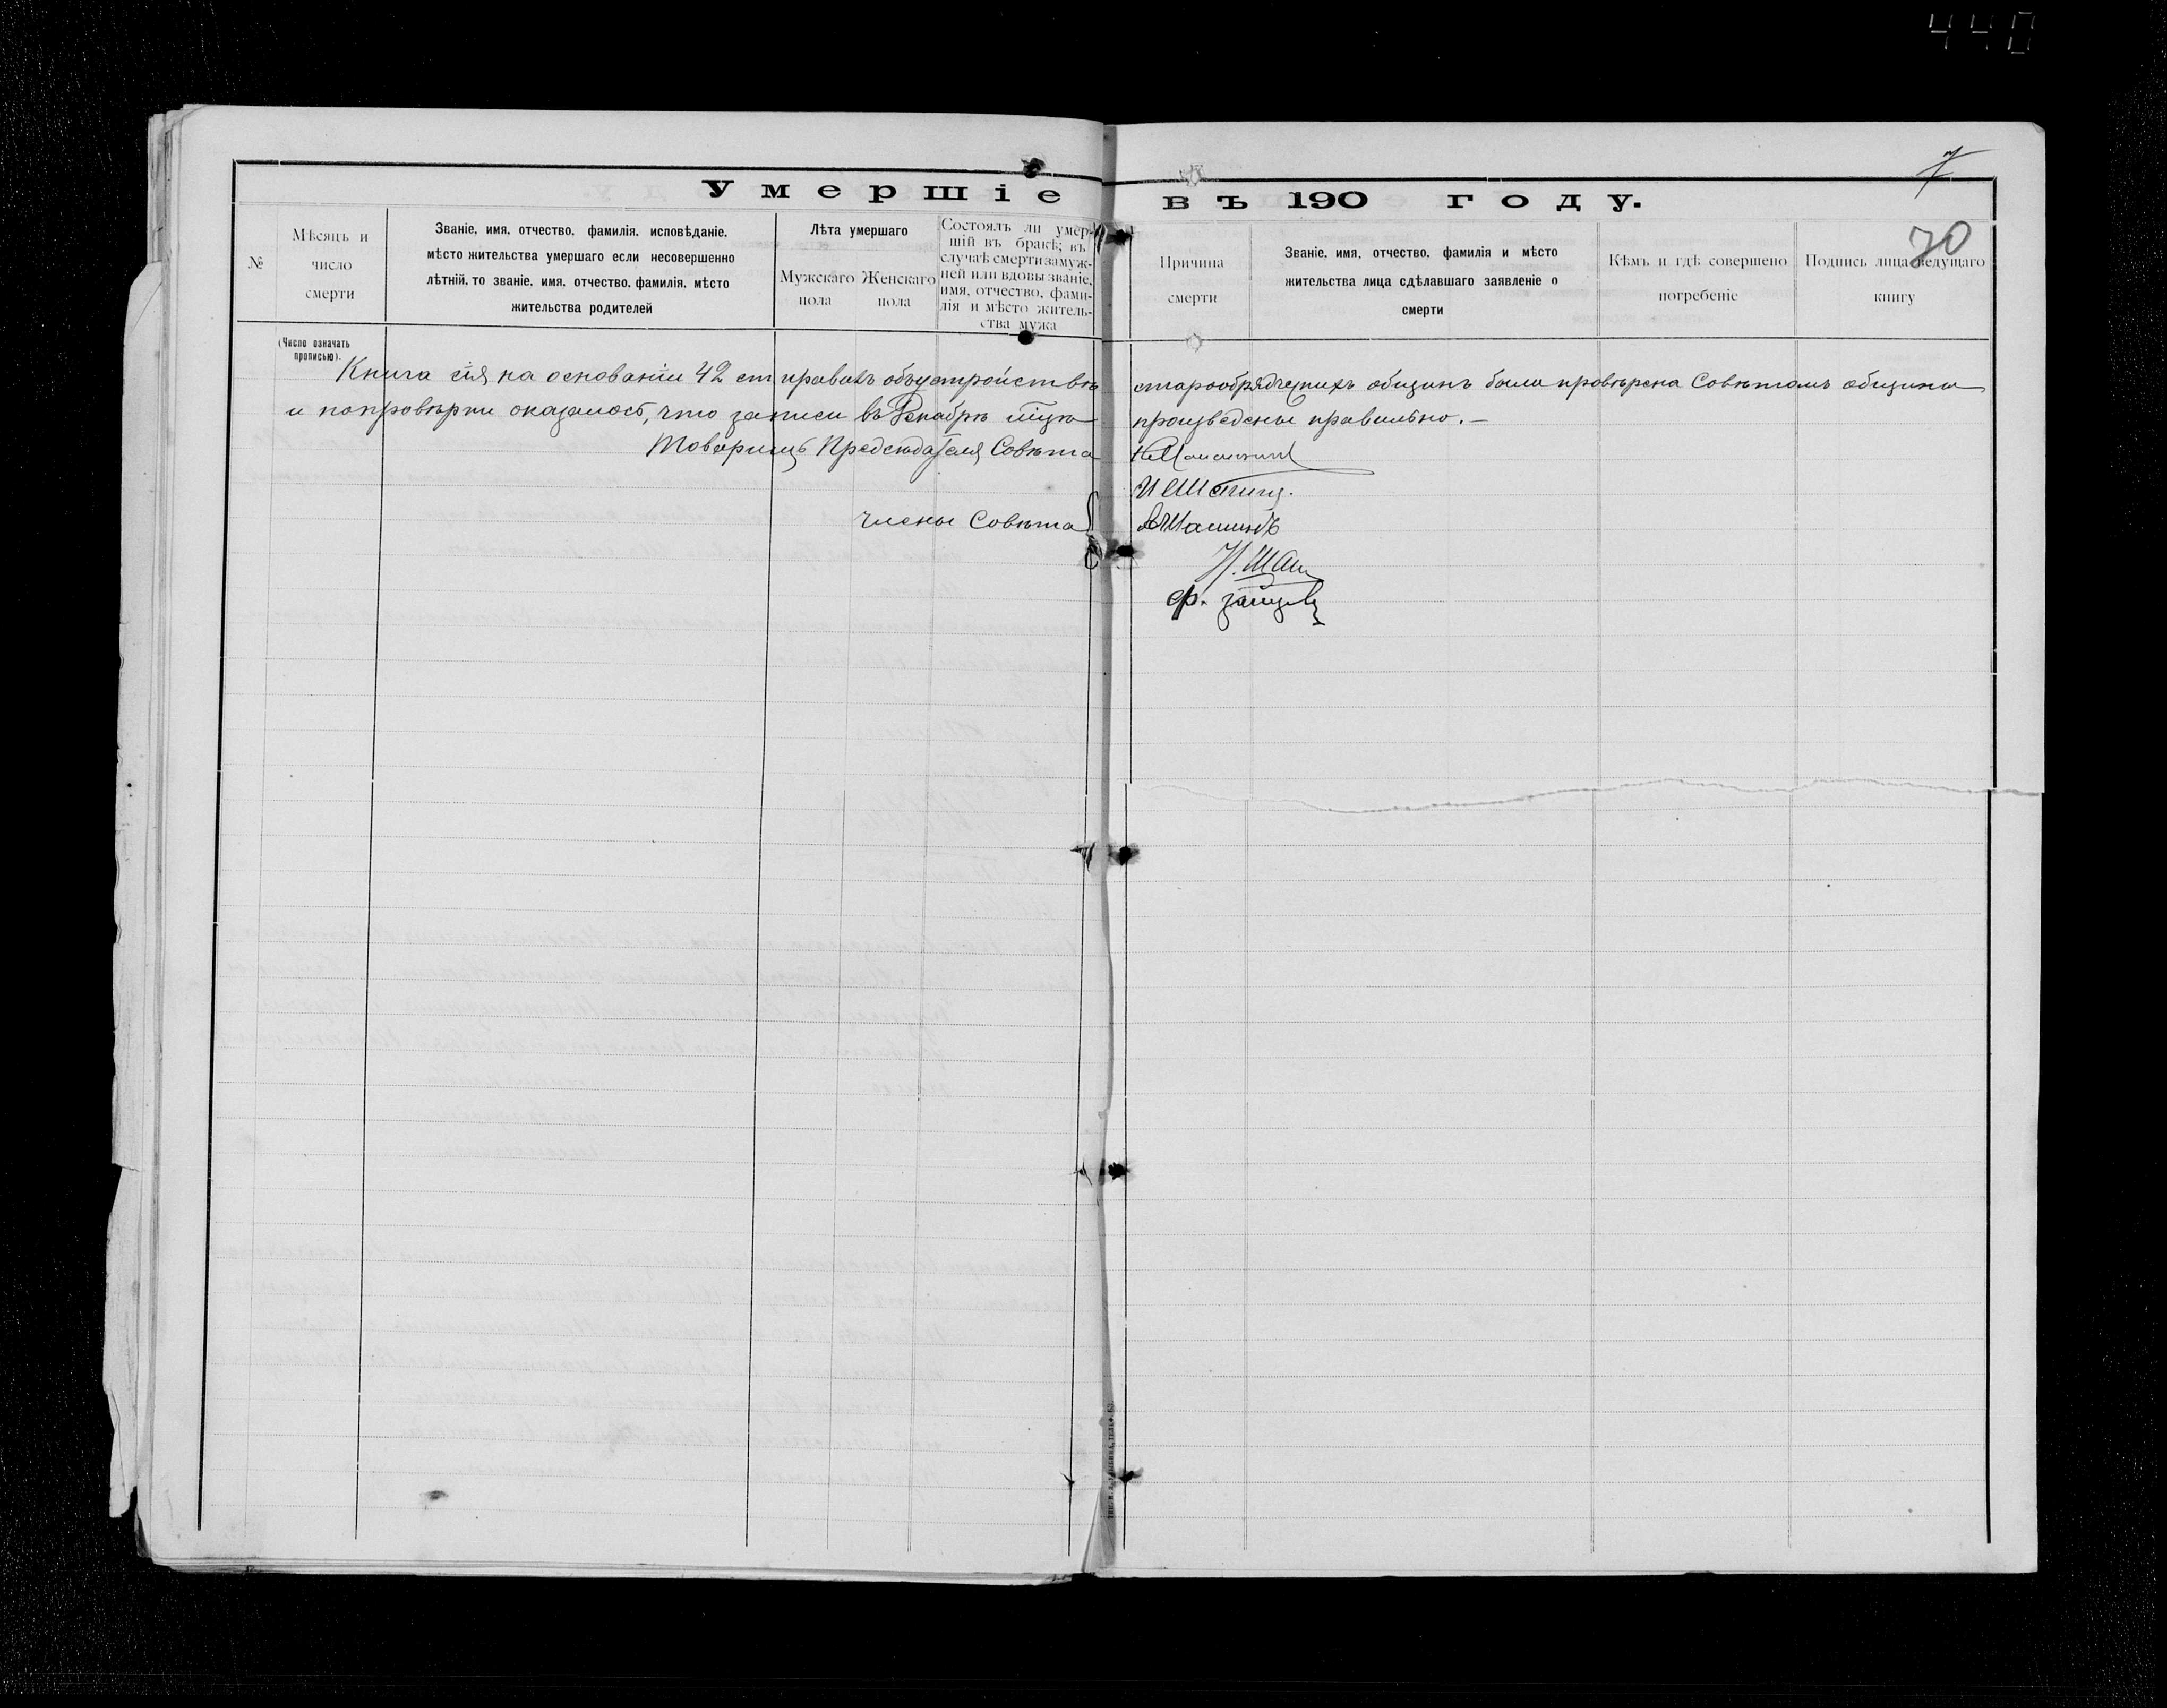 440
7
Умершіе въ 190 году.
70
№
Мѣсяцъ и
число
смерти
Званіе, имя, отчество, фамилія, исповѣданіе,
мѣсто жительства умершаго если несовершенно
лѣтній, то званіе, имя, отчество, фамилія, мѣсто
жительства родителей
Лѣта умершаго
Мужскаго
пола
Женскаго
пола
Состоялъ ли умер-
шій въ бракѣ; въ
случаѣ смерти замуж-
ней или вдовы званіе,
имя, отчество, фами-
лія и мѣсто житель-
ства мужа
Причина
смерти
Званіе, имя, отчество, фамилія и мѣсто
жительства лица сдѣлавшаго заявленіе о
смерти
Кѣмъ и гдѣ совершено
погребеніе
Подпись лица ведущаго
книгу
(Число означать
прописью).
Книга сія на основаніи 42 ст правилъ объ устройствѣ старообрядческихъ общинъ была провѣрена Совѣтомъ общины
и по провѣрки оказалось, что записи въ Декабрѣ мѣсяцѣ произведены правильно. —
Товарищъ Предсѣдателя Совѣта
члены Совѣта
Н. Ша
Ф. Зайцевъ